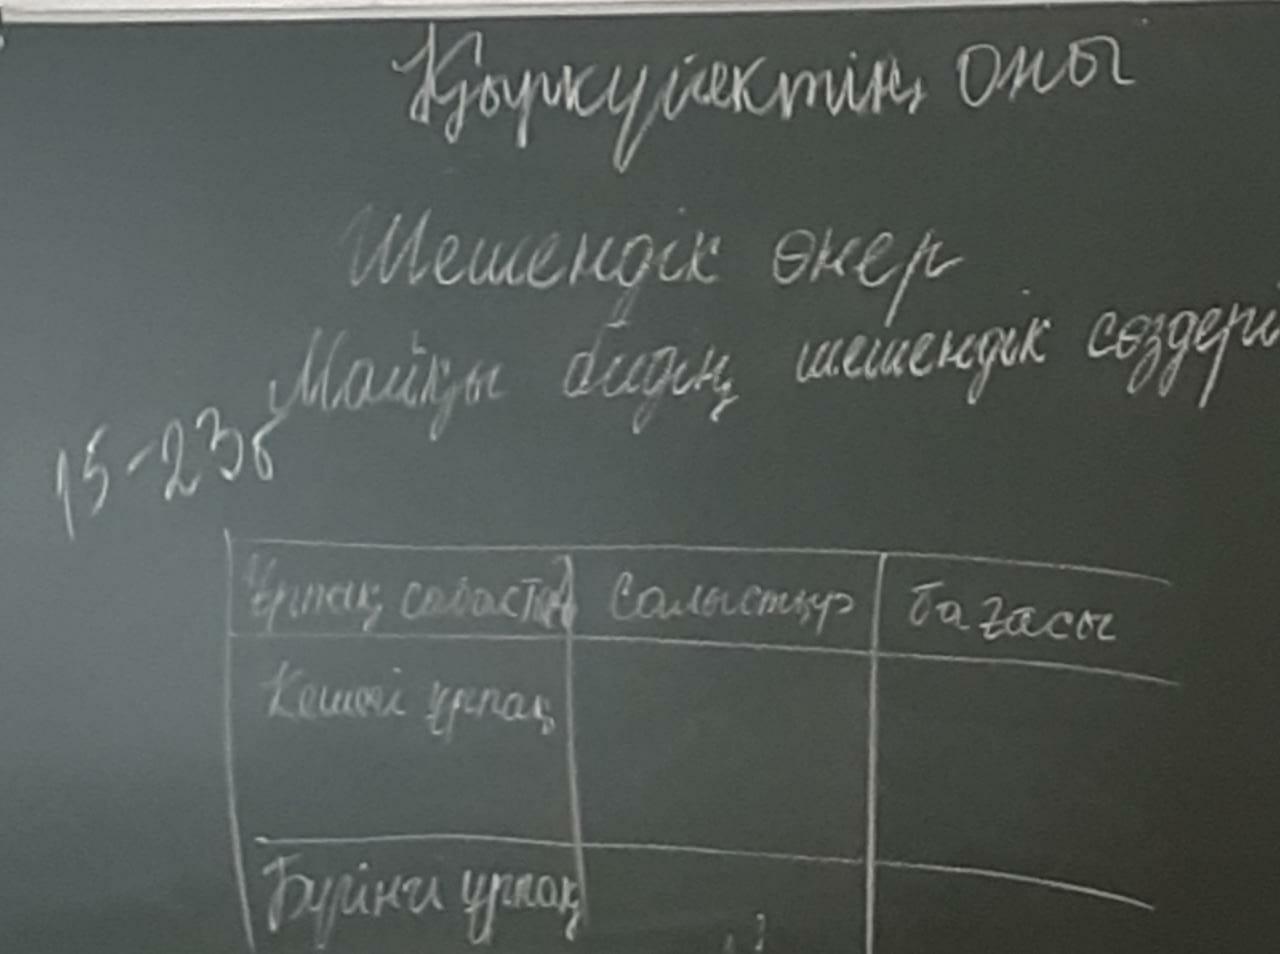 Қыркүйектің оны
Шешендік өнер
Майқы бидің шешендік сөздері
15-23б
Ұрпақ сабақтас Салыстыру бағасы
Кешегі ұрпақ
Бүгінгі ұрпақ